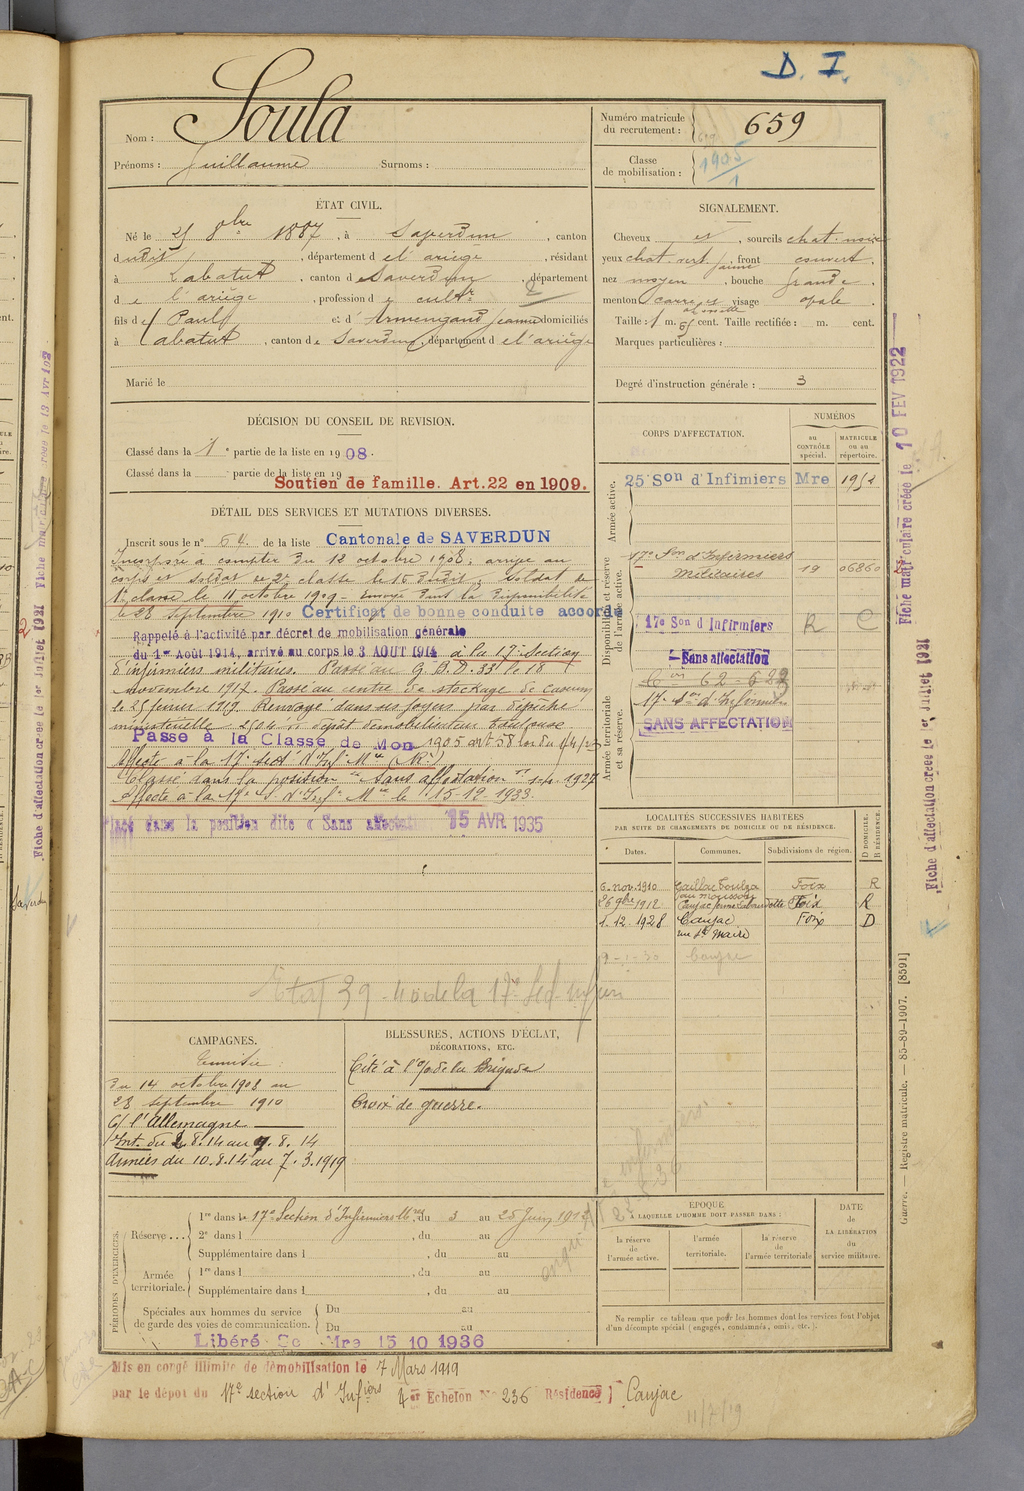 D. I.
Nom : Soula
Prénoms : Guillaume Surnoms :
Numéro matricule du recrutement : 659
Classe de mobilisation : 1905
1
ÉTAT CIVIL.
Né le 25 8bre 1887, à Saverdun, canton
dudit, département de l'ariège, résidant
à Labatut, canton de Saverdun, département
de l'ariège, profession de cultr 2
fils de Paul et d'Armengaud Jeanne domiciliés
à Labatut, canton de Saverdun, département de l'ariège
Marié le
SIGNALEMENT.
Cheveux et, sourcils chat. noirs
yeux chat. vert jaune, front couvert,
nez moyen, bouche grande,
menton carré et visage ovale
Taille : 1 m. cent. Taille rectifiée : m. cent.
Marques particulières :
Degré d'instruction générale : 3
DÉCISION DU CONSEIL DE REVISION.
Classé dans la 1e partie de la liste en 1908.
Classé dans la partie de la liste en 19
Soutien de famille. Art. 22 en 1909.
DÉTAIL DES SERVICES ET MUTATIONS DIVERSES.
Inscrit sous le n° 64 de la liste Cantonale de SAVERDUN
Incorporé à compter du 12 octobre 1908, arrivé au
corps et soldat de 2e classe le 16 dudit; soldat de
1e classe le 11 octobre 1909 - envoyé dans la disponibilité
le 28 septembre 1910 Certificat de bonne conduite accordé
Rappelé à l'activité par décret de mobilisation générale
du 1er Août 1914, arrivé au corps le 3 AOUT 1914 à la 17e section
d'infirmiers militaires. Passé au G.B.D. 33 le 18
novembre 1917. Passé au centre de stockage de
le 25 février 1919. Renvoyé dans ses foyers par dépêche
ministérielle dépôt démobilisateur toulouse
Passé à la Classe de Mon 1905 art 58 loi du 1/4/23
Affecté à la 17e sect. d'Inf. Mre (R.)
Classé dans la position "sans affectation" 1927
Affecté à la 17e S. d'Inf. Mre le 15-12-1933.
Placé dans la position dite « Sans affectation 15 AVR 1935
39-40 de la 17e Sect.
CORPS D'AFFECTATION.
NUMÉROS
au CONTRÔLE spécial.
MATRICULE ou au répertoire.
Armée active.
25e Son d'Infirmiers Mre 1952
Disponibilité et réserve de l'armée active.
17e Son d'Infirmiers Militaires 19 06860
17e Son d'Infirmiers R C
Sans affectation
Armée territoriale et sa réserve.
17e Son d'Infirmiers
SANS AFFECTATION
LOCALITÉS SUCCESSIVES HABITÉES
PAR SUITE DE CHANGEMENTS DE DOMICILE OU DE RÉSIDENCE.
Dates. Communes. Subdivisions de région. D DOMICILE. R RÉSIDENCE.
6. nov. 1910 Gaillac Toulza Foix R
26 9bre 1912 Caujac Foix R
1. 12. 1928 Caujac Foix D
rue de la Mairie
CAMPAGNES.
Tunisie
du 14 octobre 1908 au
28 septembre 1910
C/ l'Allemagne
Int. du 2.8.14 au 9.8.14
Armées du 10.8.14 au 7.3.1919
BLESSURES, ACTIONS D'ÉCLAT,
DÉCORATIONS, ETC.
Cité à l'o/ de la Brigade
Croix de guerre.
PÉRIODES D'EXERCICES.
Réserve .... 1re dans la 17e Section d'Infirmiers Mres, du 3 au 25 Juin 1912
2e dans l , du au
Supplémentaire dans l , du au
Armée territoriale. 1re dans l , du au
Supplémentaire dans l , du au
Spéciales aux hommes du service de garde des voies de communication. Du au
Du au
EPOQUE
A LAQUELLE L'HOMME DOIT PASSER DANS :
la réserve de l'armée active.
l'armée territoriale.
la réserve de l'armée territoriale
DATE
de
LA LIBÉRATION
du
service militaire.
Ne remplir ce tableau que pour les hommes dont les services font l'objet
d'un décompte spécial (engagés, condamnés, omis, etc.).
Libéré Se Mre 15 10 1936
Mis en congé illimité de démobilisation le 7 Mars 1919
par le dépôt du 17e section d'Infiers 4er Echelon N° 236 Résidence Caujac
11/7/19
Fiche matriculaire créée le 10 FEV 1922
Fiche d'affectation créée le 1er Juillet 1931
Guerre. — Registre matricule. — 85-89-1907. [8591]
Fiche d'affectation créée le 1er Juillet 1931